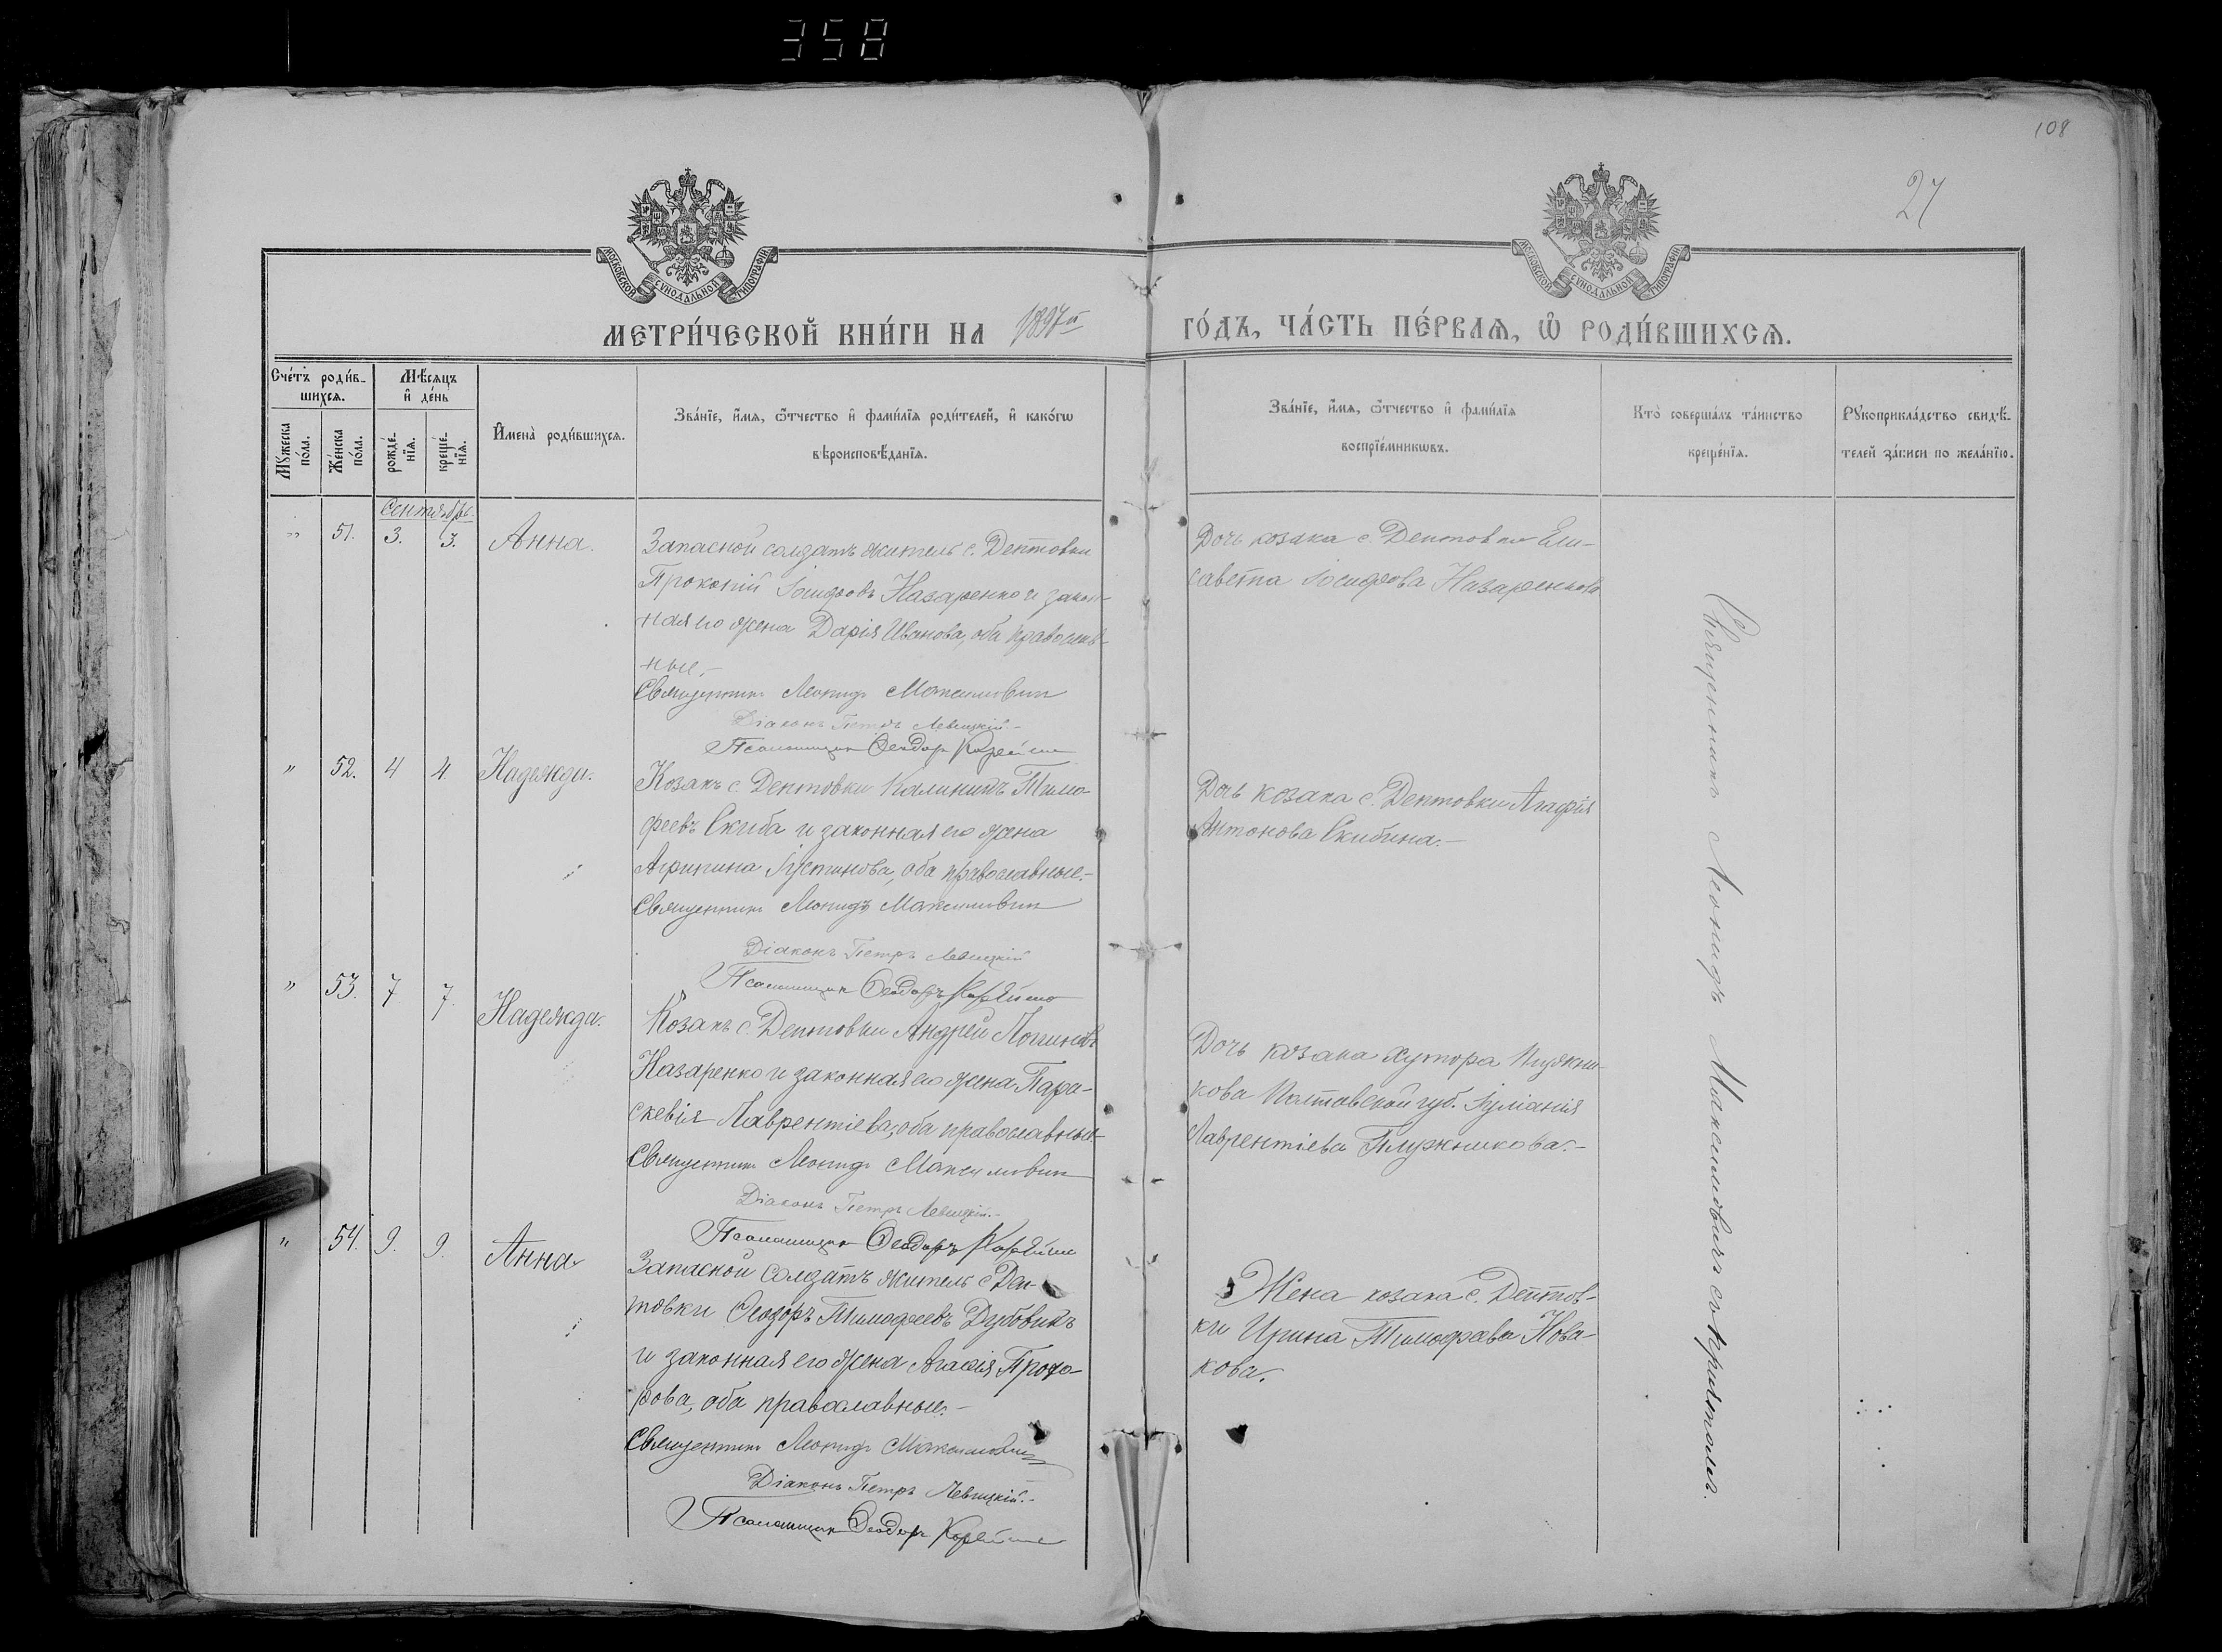 358
108
27
МОСКОВСКОЙ СѴНОДАЛЬНОЙ ТИПОГРАФІИ
МОСКОВСКОЙ СѴНОДАЛЬНОЙ ТИПОГРАФІИ
МЕТРИ́ЧЕСКОЙ КНИ́ГИ НА 1897й ГО́ДЪ, ЧА́СТЬ ПЕ́РВАѦ, Ѡ҆ РОДИ́ВШИХСѦ.
Сче́тъ роди́в-
шихсѧ.
Мѣ́сѧцъ
и҆ де́нь
Мꙋ́жеска
по́ла.
Же́нска
по́ла.
рожде́-
нїѧ.
креще́-
нїѧ.
И҆мена̀ роди́вшихсѧ.
Зва́нїе, и҆́мѧ, ѻ҆́тчество и҆ фами́лїѧ роди́телей, и҆ како́гѡ
вѣроисповѣ́данїѧ.
Зва́нїе, и҆́мѧ, ѻ҆́тчество и҆ фами́лїѧ
воспрїе́мникѡвъ.
Кто̀ соверша́лъ та́инство
креще́нїѧ.
Рꙋкоприкла́дство свидѣ́-
телей за́писи по жела́нїю.
Сентябрь.
" 51. 3. 3. Анна.
Запасной солдатъ житель с. Дептовки
Прокопій Іосифовъ Назаренко и закон-
ная его жена Дарія Иванова, оба православ-
ные.-
Священникъ Леонидъ Максимовичъ
Діаконъ Петръ Левицкій.-
Псаломщикъ Ѳеодоръ
Дочь козака с. Дептовки Ели-
савета Іосифова Назаренкова
" 52. 4 4. Надежда.
Козакъ с. Дептовки Калиникъ Тимо-
феевъ Скиба и законная его жена
Агрипина Іустинова, оба православные.-
Священникъ Леонидъ Максимовичъ
Діаконъ Петръ Левицкій
Псаломщикъ Ѳеодоръ
Дочь козака с. Дептовки Агафія
Антонова Скибина.-
" 53. 7 7. Надежда.
Козакъ с. Дептовки Андрей Логиновъ
Назаренко и законная его жена Пара-
скевія Лаврентіева, оба православные.-
Священникъ Леонидъ Максимовичъ
Діаконъ Петръ Левицкій.-
Псаломщикъ Ѳеодоръ
Дочь козака хутора
кова Полтавской губ. Іуліанія
Лаврентіева Плужникова.-
" 54. 9. 9. Анна
Запасной солдатъ житель с. Деп-
товки Ѳеодоръ Тимофеевъ Дубовикъ
и законная его жена Агафія Прохо-
рова, оба православные.-
Священникъ Леонидъ Максимовичъ
Діаконъ Петръ Левицкій.-
Псаломщикъ Ѳеодоръ
Жена козака с. Дептов-
ки Ирина Тимофеева Нова-
кова.
Священникъ Леонидъ Максимовичъ съ причтомъ.